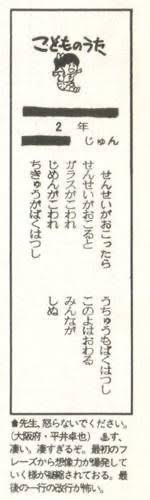 こどものうた
2年
じゅん
せんせいがおこったら
せんせいがおこると
ガラスがこわれ
じめんがこわれ
ちきゅうがばくはつし
うちゅうもばくはつし
このよはおわる
みんなが
しぬ
♠先生、怒らないでください。
(大阪府・平井卓也) ♨す、
凄い。凄すぎるぞ。最初のフ
レーズから想像力が爆発して
いく様が凝縮されておる。最
後の一行の改行が怖い。